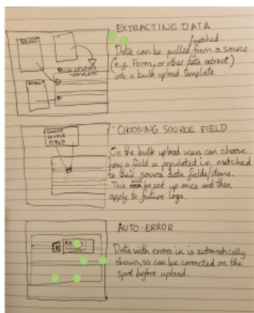 EXTRACTING DATA
pushed
Data can be pulled from a source
(e.g. Form, or other data extract)
into a bulk upload template
BULK UPLOAD
TEMPLATE
CHOOSING SOURCE FIELD
CHOOSE
SOURCE
FIELD
On the bulk upload users can choose
how a field is populated i.e. matched
to their source data fields/items.
This can be set up once and then
apply to future logs.
AUTO-ERROR
Data with errors in is automatically
shown, so can be corrected on the
spot before upload